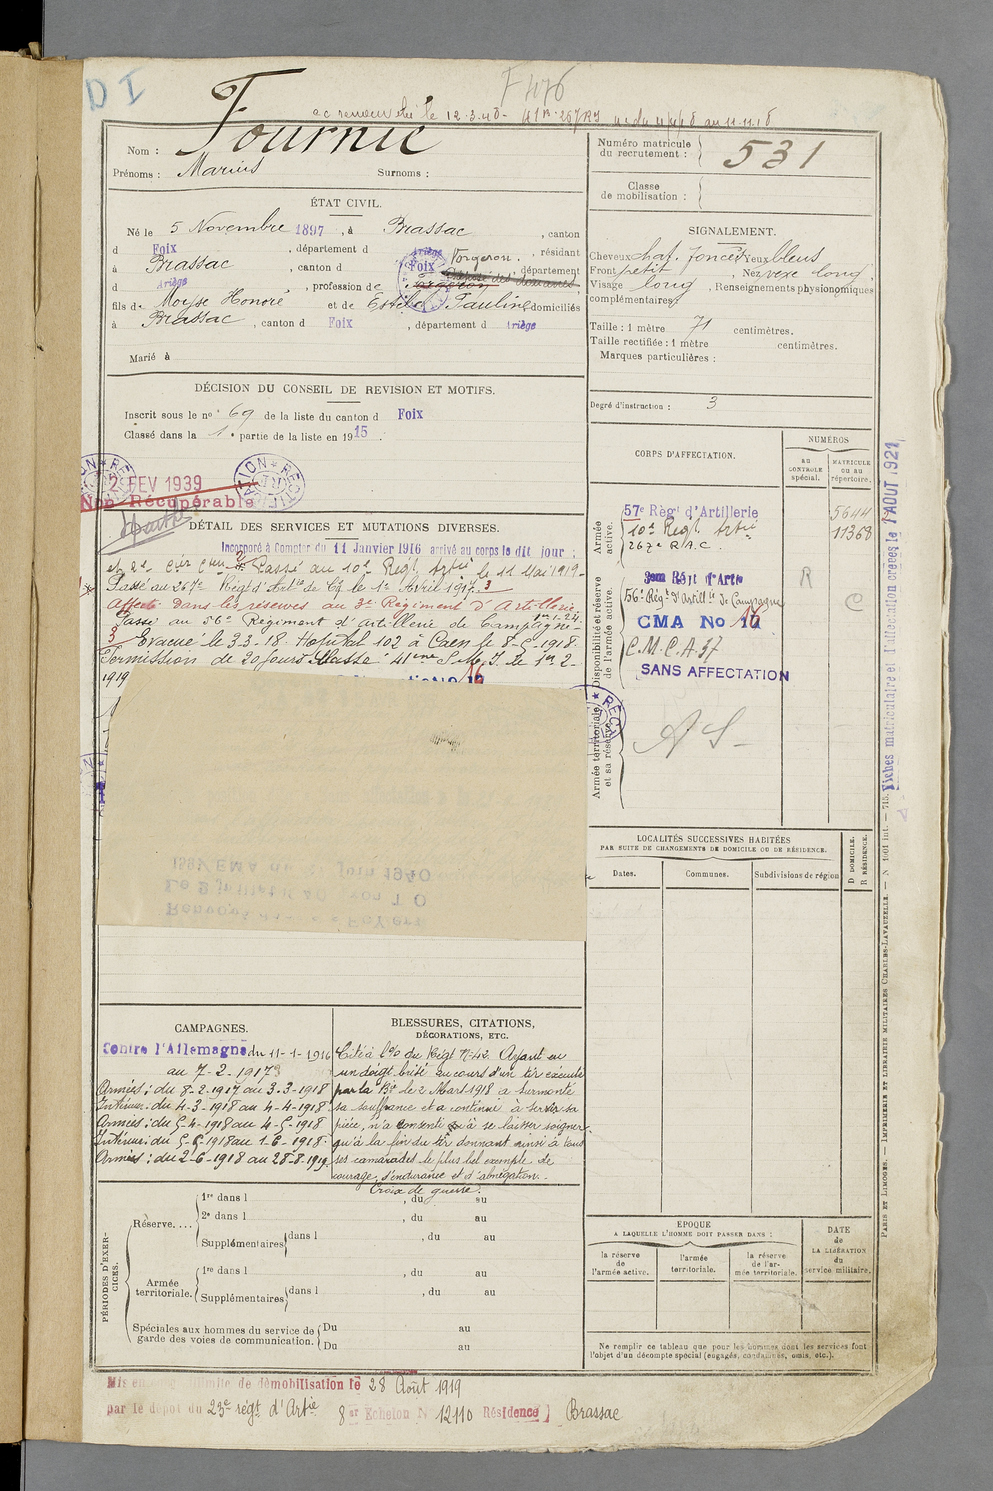 D I
F 476
Nom : Fournié
Prénoms : Marius Surnoms :
Numéro matricule du recrutement : 531
Classe de mobilisation :
ÉTAT CIVIL.
Né le 5 Novembre 1897, à Brassac, canton
d Foix, département d Ariège, résidant
à Brassac, canton d Foix, département
d Ariège, profession de Forgeron
fils de Moyse Honoré et de Estèbe Pauline domiciliés
à Brassac, canton d Foix, département d Ariège
Marié à
SIGNALEMENT.
Cheveux chat. foncés Yeux bleus
Front petit, Nez vexe long
Visage long, Renseignements physionomiques
complémentaires
Taille : 1 mètre 71 centimètres.
Taille rectifiée : 1 mètre centimètres.
Marques particulières :
Degré d'instruction : 3
DÉCISION DU CONSEIL DE REVISION ET MOTIFS.
Inscrit sous le n° 69 de la liste du canton d Foix
Classé dans la 1e partie de la liste en 1915.
2 FEV 1939
Non Récupérable
DÉTAIL DES SERVICES ET MUTATIONS DIVERSES.
Incorporé à Compter du 11 Janvier 1916 arrivé au corps le dit jour :
et 2e Passé au 10e Régt Artie le 11 Mai 1919
Passé au 267e Régt d'Artie de Cg le 1er Avril 1917. 3
Affecté dans les réserves au 3e Régiment d'Artillerie.
Passé au 56e Régiment d'artillerie de Campagne 1-1-24
3 Evacué le 3.3.18. Hopital 102 à Caen le 5-5-1918.
Permission de 20 jours. Passé 41eme le 1er 2-
1919
1940
CORPS D'AFFECTATION.
NUMÉROS
au CONTROLE spécial.
MATRICULE ou au répertoire.
Armée active.
57e Règt d'Artillerie 5644
10e Régt Artie 11368
267e R.A.C.
Disponibilité et réserve de l'armée active.
3eme Régt d'Artie R
56e Régt d'Artillie de Campagne C
CMA No 16
C.M.C.A. 37
SANS AFFECTATION
Armée territoriale et sa réserve.
A S -
Fiches matriculaire et d'affectation créées le 1 AOUT 1921
LOCALITÉS SUCCESSIVES HABITÉES
PAR SUITE DE CHANGEMENTS DE DOMICILE OU DE RÉSIDENCE.
Dates. Communes. Subdivisions de région D DOMICILE. R RÉSIDENCE.
CAMPAGNES.
Contre l'Allemagne du 11-1-1916
au 7-2-1917
Armées : du 8-2-1917 au 3-3-1918
Intérieur : du 4-3-1918 au 4-4-1918
Armées : du 5-4-1918 au 4-5-1918
Intérieur : du 5-5-1918 au 1-6-1918.
Armées : du 2-6-1918 au 28-8-1919
BLESSURES, CITATIONS,
DÉCORATIONS, ETC.
Cité à l'o/o du Régt N° 42. Ayant eu
un doigt brisé au cours d'un tir exécuté
par la Bie le 2 Mars 1918 a surmonté
sa souffrance et a continué à servir sa
pièce, n'a consenti à se laisser soigner
qu'à la fin du tir donnant ainsi à tous
ses camarades le plus bel exemple de
courage, d'endurance et d'abnégation.
Croix de guerre.
PÉRIODES D'EXERCICES.
Réserve....
1re dans l , du au
2e dans l , du au
Supplémentaires dans l , du au
Armée territoriale.
1re dans l , du au
Supplémentaires dans l , du au
Spéciales aux hommes du service de garde des voies de communication.
Du au
Du au
EPOQUE
A LAQUELLE L'HOMME DOIT PASSER DANS :
la réserve de l'armée active.
l'armée territoriale.
la réserve de l'armée territoriale.
DATE de LA LIBÉRATION du service militaire.
Ne remplir ce tableau que pour les hommes dont les services font
l'objet d'un décompte spécial (engagés, condamnés, omis, etc.).
PARIS ET LIMOGES. — IMPRIMERIE ET LIBRAIRIE MILITAIRES CHARLES-LAVAUZELLE. — N° 1001 int. — 715.
Mis en congé illimité de démobilisation le 28 Août 1919
par le dépôt du 23e régt d'Artie 8er Echelon N° 12110 Résidence Brassac